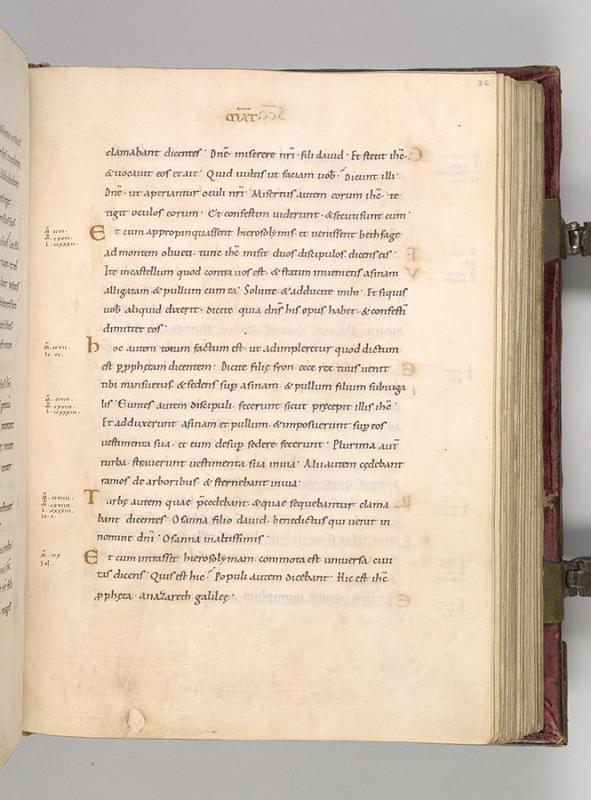 36
MAT
clamabant dicentes · Dñe miserere nr̃i · fili david · Et stetit ihc̄ ·
& vocavit eos et ait · Quid vultis ut faciam vob̄ · Dicunt illi ·
Dñe · ut aperiantur oculi nr̃i · Misertus autem eorum ihc̄ · te
tigit oculos eorum · Et confestim viderunt · & secuti sunt eum ·
Et cum appropinquassent hierosolymis · et venissent bethfage
ad montem oliveti · tunc ihc̄ misit duos discipulos dicens eis ·
Ite in castellum quod contra vos est · & statim invenietis asinam
alligatam · & pullum cum ea · Solvite · & adducite mihi · Et siquis
vob̄ aliquid dixerit · dicite quia dñs his opus habet · & confestī
dimittet eos ·
hoc autem totum factum est · ut adimpleretur quod dictum
est p̱ pphętam dicentem · Dicite filię sion · ecce rex tuus venit
tibi mansuetus · & sedens sup asinam · & pullum filium subiuga
lis · Euntes autem discipuli · fecerunt sicut pręcepit illis ihc̄ ·
Et adduxerunt asinam et pullum · & imposuerunt sup eos
vestimenta sua · et eum desup sedere fecerunt · Plurima aut̄
turba · straverunt vestimenta sua in via · Alii autem cędebant
ramos de arboribus · & sternebant in via ·
Turbę autem quae p̄cedebant · & quae sequebantur clama
bant dicentes · Osanna filio david · benedictus qui venit in
nomine dñi · Osanna in altissimis ·
Et cum intrasset hierosolymam · commota est universa civi
tas dicens · Quis est hic · Populi autem dicebant · Hic est ihc̄
pphęta · a nazareth galileę ·